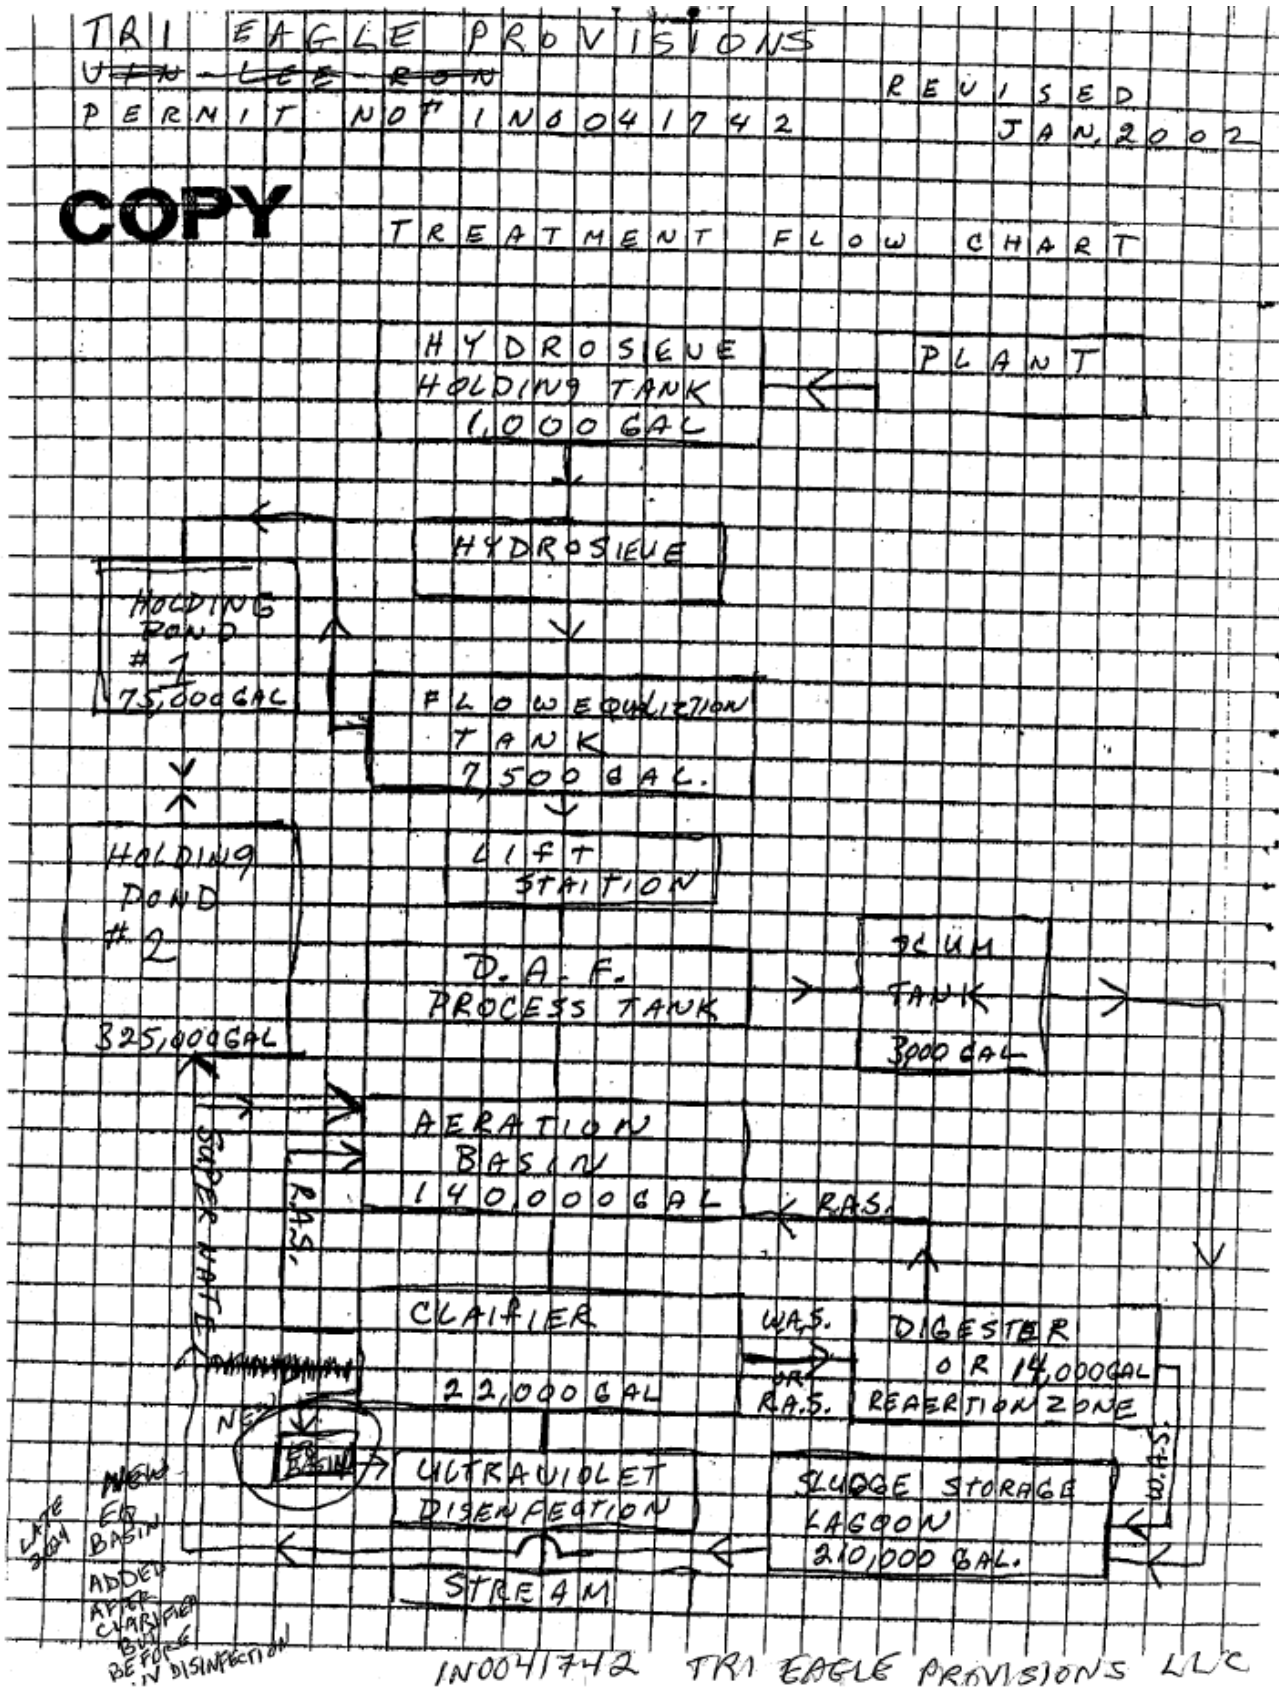 TRI EAGLE PROVISIONS
VIN-LEE-RON
REVISED
PERMIT NO# IN0041742
JAN, 2002
COPY
TREATMENT FLOW CHART
HYDROSIEVE
HOLDING TANK
1,000 GAL
PLANT
HYDROSIEVE
HOLDING
POND
# 1
75,000 GAL
FLOW EQUALIZTION
TANK
7,500 GAL.
HOLDING
POND
# 2
325,000 GAL
LIFT
STAITION
D.A.F.
PROCESS TANK
SCUM
TANK
3,000 GAL
AERATION
BASIN
140,000 GAL
R.A.S.
SUPER NATE
R.A.S.
CLAIFIER
22,000 GAL
W.A.S.
OR
R.A.S.
DIGESTER
OR 14,000 GAL
REAERTION ZONE
W.A.S.
NEW
EQ
BASIN
ULTRAVIOLET
DISENFECTION
SLUDGE STORAGE
LAGOON
210,000 GAL.
STREAM
NEW
EQ
BASIN
ADDED
AFTER
CLARIFIER
BUT
BEFORE
UV DISINFECTION
LATE
IN0041742 TRI EAGLE PROVISIONS LLC